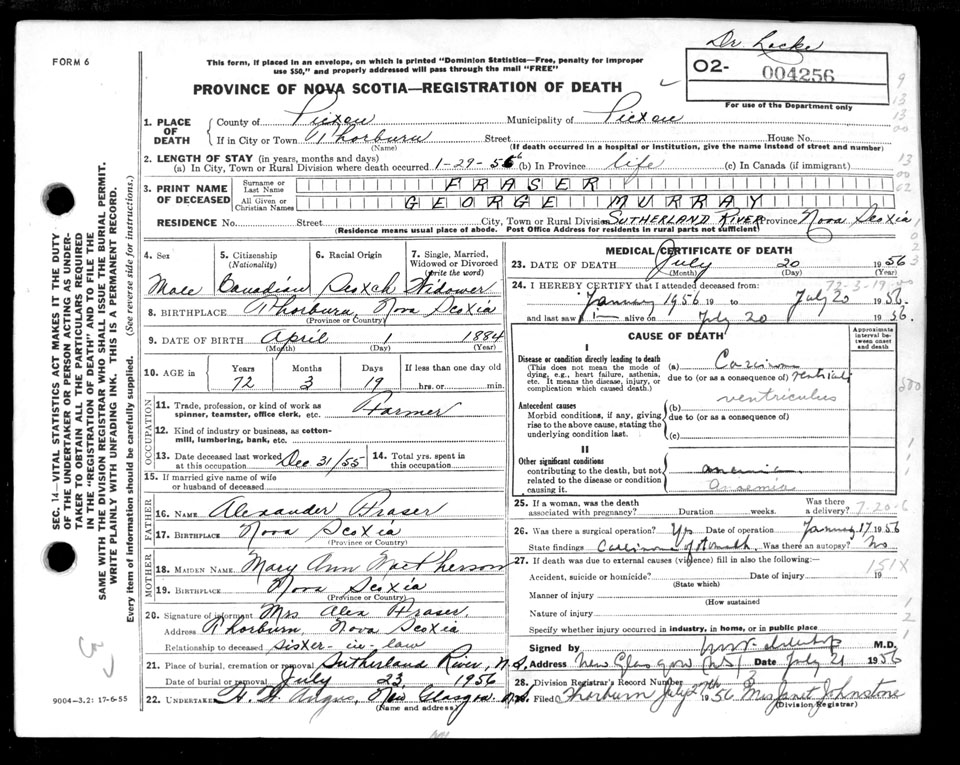 Dr. Locke
FORM 6
This form, if placed in an envelope, on which is printed "Dominion Statistics—Free, penalty for improper
use $50," and properly addressed will pass through the mail "FREE"
02- 004256
For use of the Department only
PROVINCE OF NOVA SCOTIA—REGISTRATION OF DEATH
1. PLACE OF DEATH
County of Pictou Municipality of Pictou
If in City or Town Thorburn Street House No.
(Name) (If death occurred in a hospital or institution, give the name instead of street and number)
2. LENGTH OF STAY (in years, months and days)
(a) In City, Town or Rural Division where death occurred 1-29-56 (b) In Province life (c) In Canada (if immigrant)
3. PRINT NAME OF DECEASED
Surname or Last Name FRASER
All Given or Christian Names GEORGE MURRAY
RESIDENCE No. Street City, Town or Rural Division SUTHERLAND RIVER Province Nova Scotia
(Residence means usual place of abode. Post Office Address for residents in rural parts not sufficient)
4. Sex 5. Citizenship (Nationality) 6. Racial Origin 7. Single, Married, Widowed or Divorced (write the word)
Male Canadian Scotch Widower
8. BIRTHPLACE Thorburn, Nova Scotia
(Province or Country)
9. DATE OF BIRTH April 1 1884
(Month) (Day) (Year)
10. AGE in Years Months Days If less than one day old
72 3 19 hrs. or min.
OCCUPATION
11. Trade, profession, or kind of work as spinner, teamster, office clerk, etc. Farmer
12. Kind of industry or business, as cotton-mill, lumbering, bank, etc.
13. Date deceased last worked at this occupation Dec 31/55 14. Total yrs. spent in this occupation
15. If married give name of wife or husband of deceased
FATHER
16. NAME Alexander Fraser
17. BIRTHPLACE Nova Scotia
(Province or Country)
MOTHER
18. MAIDEN NAME Mary Ann MacPherson
19. BIRTHPLACE Nova Scotia
(Province or Country)
20. Signature of informant Mrs Alex Fraser,
Address Thorburn, Nova Scotia
Relationship to deceased sister-in-law
21. Place of burial, cremation or removal Sutherland River, N.S.
Date of burial or removal July 23 1956
22. UNDERTAKER Angus, New Glasgow N.S.
(Name and address)
9004-3.2: 17-6-55
MEDICAL CERTIFICATE OF DEATH
23. DATE OF DEATH July 20 1956
(Month) (Day) (Year)
24. I HEREBY CERTIFY that I attended deceased from: 72-3-19
January 1956 19 to July 20 1956
and last saw alive on July 20 1956.
CAUSE OF DEATH
Approximate interval between onset and death
I
Disease or condition directly leading to death
(This does not mean the mode of dying, e.g., heart failure, asthenia, etc. It means the disease, injury, or complication which caused death.)
(a) Carcinoma
due to (or as a consequence of) ventriculi
ventriculus
Antecedent causes
Morbid conditions, if any, giving rise to the above cause, stating the underlying condition last.
(b)
due to (or as a consequence of)
(c)
II
Other significant conditions
contributing to the death, but not related to the disease or condition causing it.
anemia
anaemia
25. If a woman, was the death associated with pregnancy? Duration weeks. Was there a delivery? 7-20-6
26. Was there a surgical operation? Yes Date of operation January 17 1956
State findings Carcinoma of stomach Was there an autopsy? No
27. If death was due to external causes (violence) fill in also the following: 151X
Accident, suicide or homicide? Date of injury 19
(State which)
Manner of injury
(How sustained)
Nature of injury
Specify whether injury occurred in industry, in home, or in public place
Signed by M.D.
Address New Glasgow (NS) Date July 21 1956
28. Division Registrar's Record Number 3
Filed Thorburn July 27th 1956 Mrs Janet Johnstone
(Division Registrar)
SEC. 14—VITAL STATISTICS ACT MAKES IT THE DUTY
OF THE UNDERTAKER OR PERSON ACTING AS UNDER-
TAKER TO OBTAIN ALL THE PARTICULARS REQUIRED
IN THE "REGISTRATION OF DEATH" AND TO FILE THE
SAME WITH THE DIVISION REGISTRAR WHO SHALL ISSUE THE BURIAL PERMIT.
WRITE PLAINLY WITH UNFADING INK. THIS IS A PERMANENT RECORD.
Every item of information should be carefully supplied. (See reverse side for instructions.)